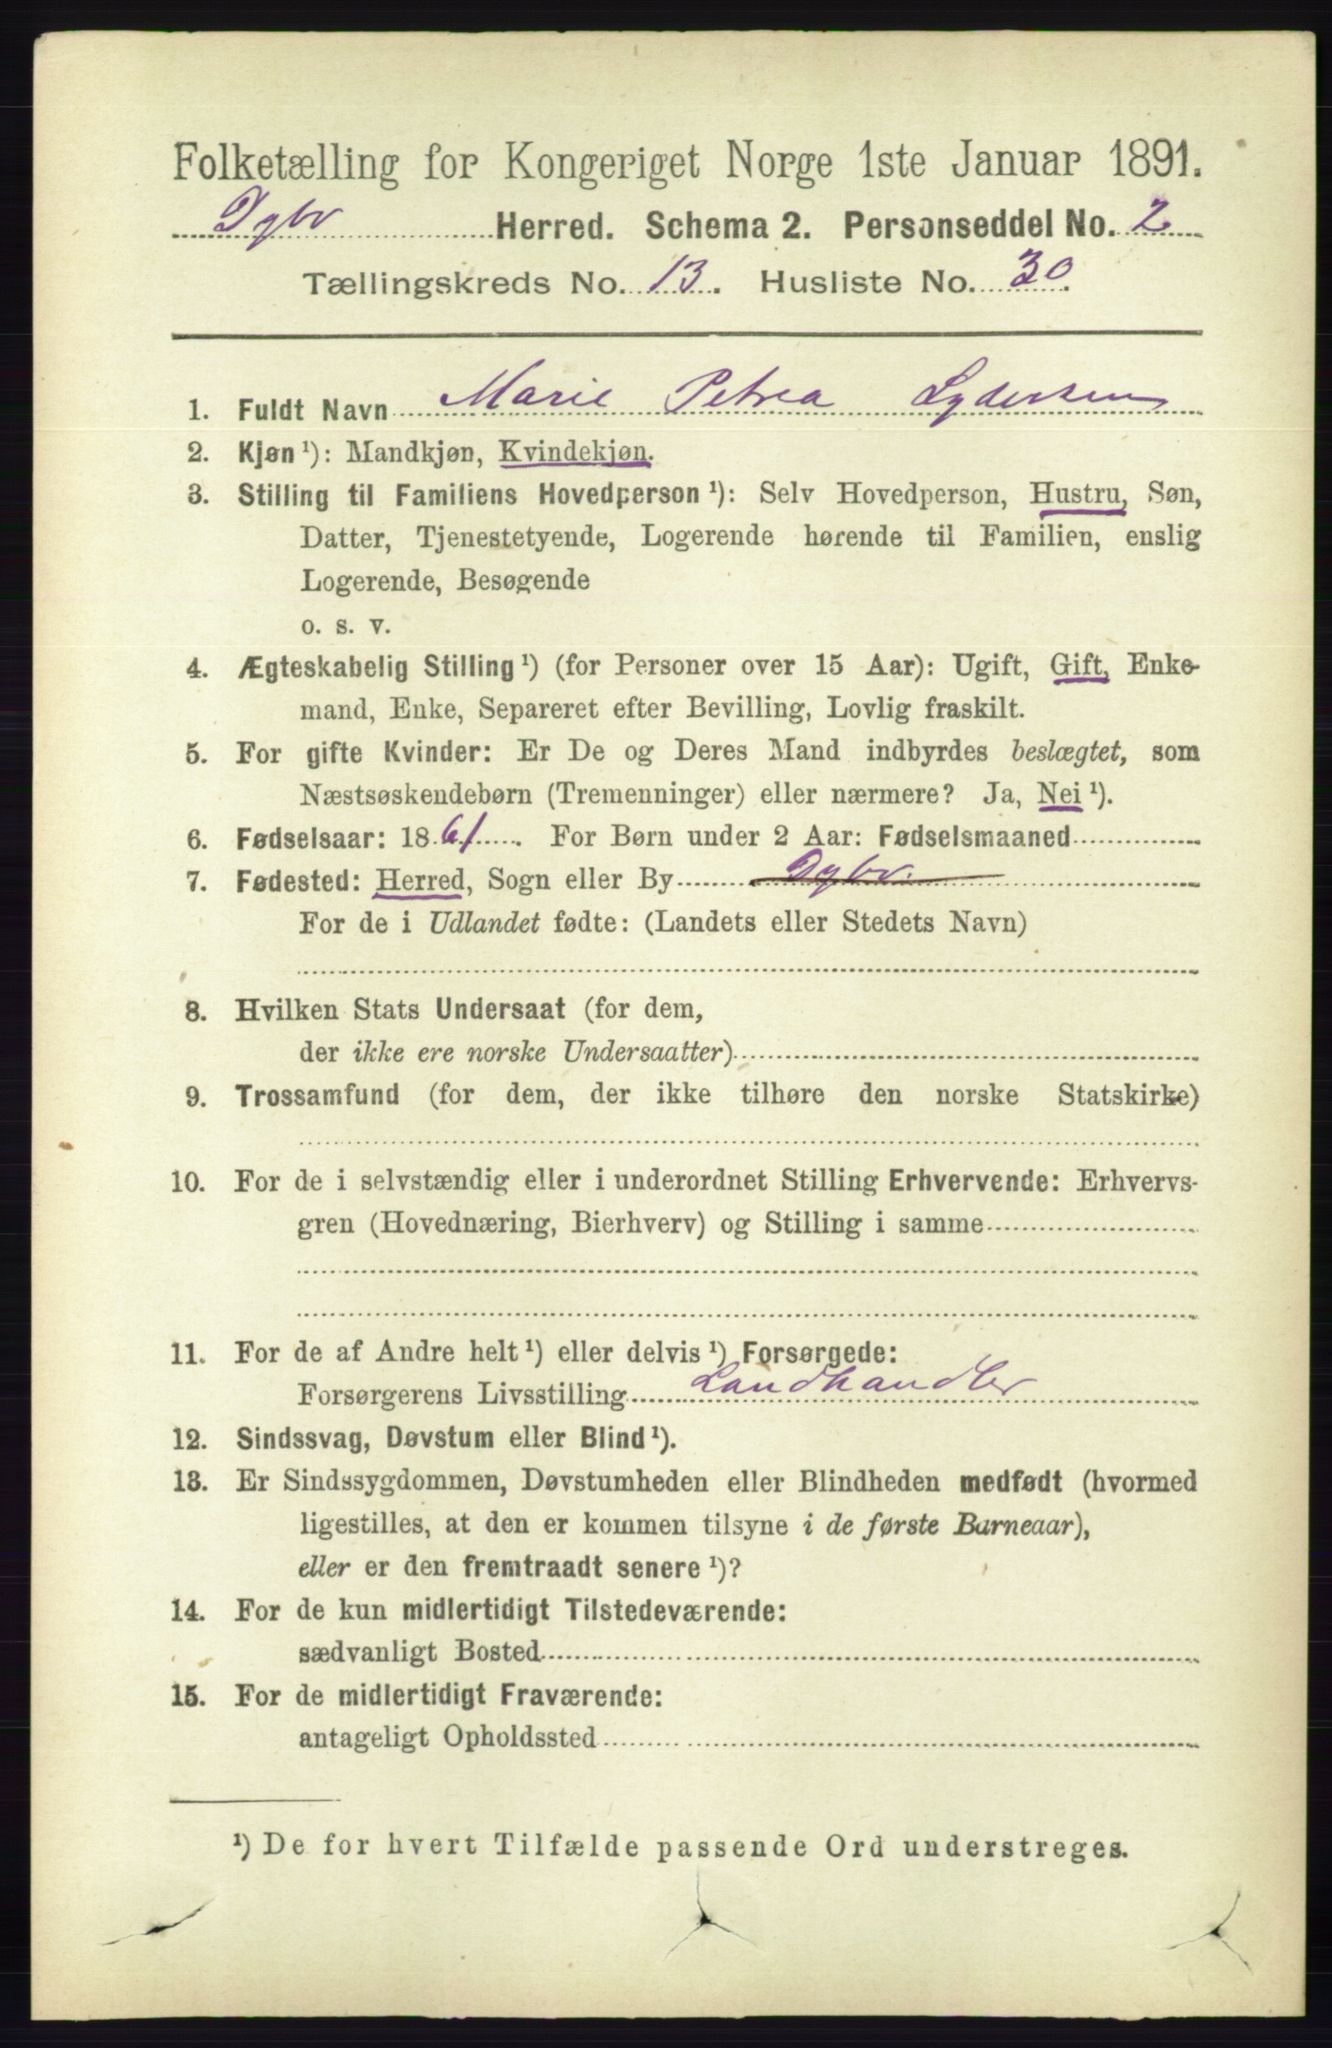 Folketælling for Kongeriget Norge 1ste Januar 1891.
Dybv Herred. Schema 2. Personseddel No. 2
Tællingskreds No. 13. Husliste No. 30.
1. Fuldt Navn Marie Petrea Lydersen
2. Kjøn ¹): Mandkjøn, Kvindekjøn.
3. Stilling til Familiens Hovedperson ¹): Selv Hovedperson, Hustru, Søn,
Datter, Tjenestetyende, Logerende hørende til Familien, enslig
Logerende, Besøgende
o. s. v.
4. Ægteskabelig Stilling ¹) (for Personer over 15 Aar): Ugift, Gift, Enke-
mand, Enke, Separeret efter Bevilling, Lovlig fraskilt.
5. For gifte Kvinder: Er De og Deres Mand indbyrdes beslægtet, som
Næstsøskendebørn (Tremenninger) eller nærmere? Ja, Nei ¹).
6. Fødselsaar: 1861. For Børn under 2 Aar: Fødselsmaaned
7. Fødested: Herred, Sogn eller By Dybv.
For de i Udlandet fødte: (Landets eller Stedets Navn)
8. Hvilken Stats Undersaat (for dem,
der ikke ere norske Undersaatter)
9. Trossamfund (for dem, der ikke tilhøre den norske Statskirke)
10. For de i selvstændig eller i underordnet Stilling Erhvervende: Erhvervs-
gren (Hovednæring, Bierhverv) og Stilling i samme
11. For de af Andre helt ¹) eller delvis ¹) Forsørgede:
Forsørgerens Livsstilling Landhandler
12. Sindssvag, Døvstum eller Blind ¹).
13. Er Sindssygdommen, Døvstumheden eller Blindheden medfødt (hvormed
ligestilles, at den er kommen tilsyne i de første Barneaar),
eller er den fremtraadt senere ¹)?
14. For de kun midlertidigt Tilstedeværende:
sædvanligt Bosted
15. For de midlertidigt Fraværende:
antageligt Opholdssted
¹) De for hvert Tilfælde passende Ord understreges.